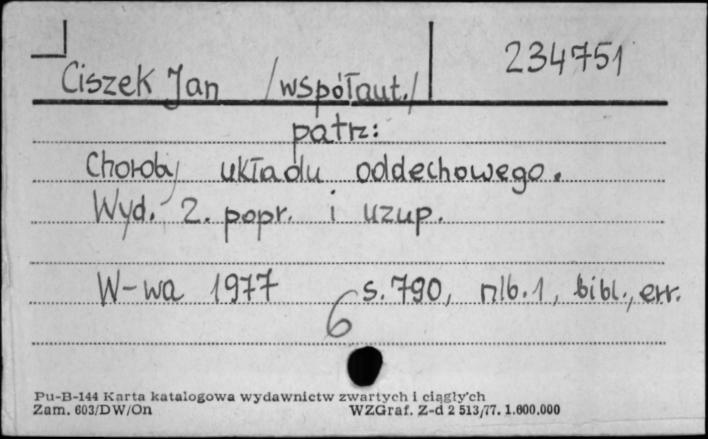 234751
Ciszek Jan /współaut./
patrz:
Choroby układu oddechowego.
Wyd. 2. popr. i uzup.
W-wa 1977 s. 790, nlb. 1, bibl., err.
6
Pu-B-144 Karta katalogowa wydawnictw zwartych i ciągły'ch
Zam. 603/DW/On WZGraf. Z-d 2 513/77. 1.600.000